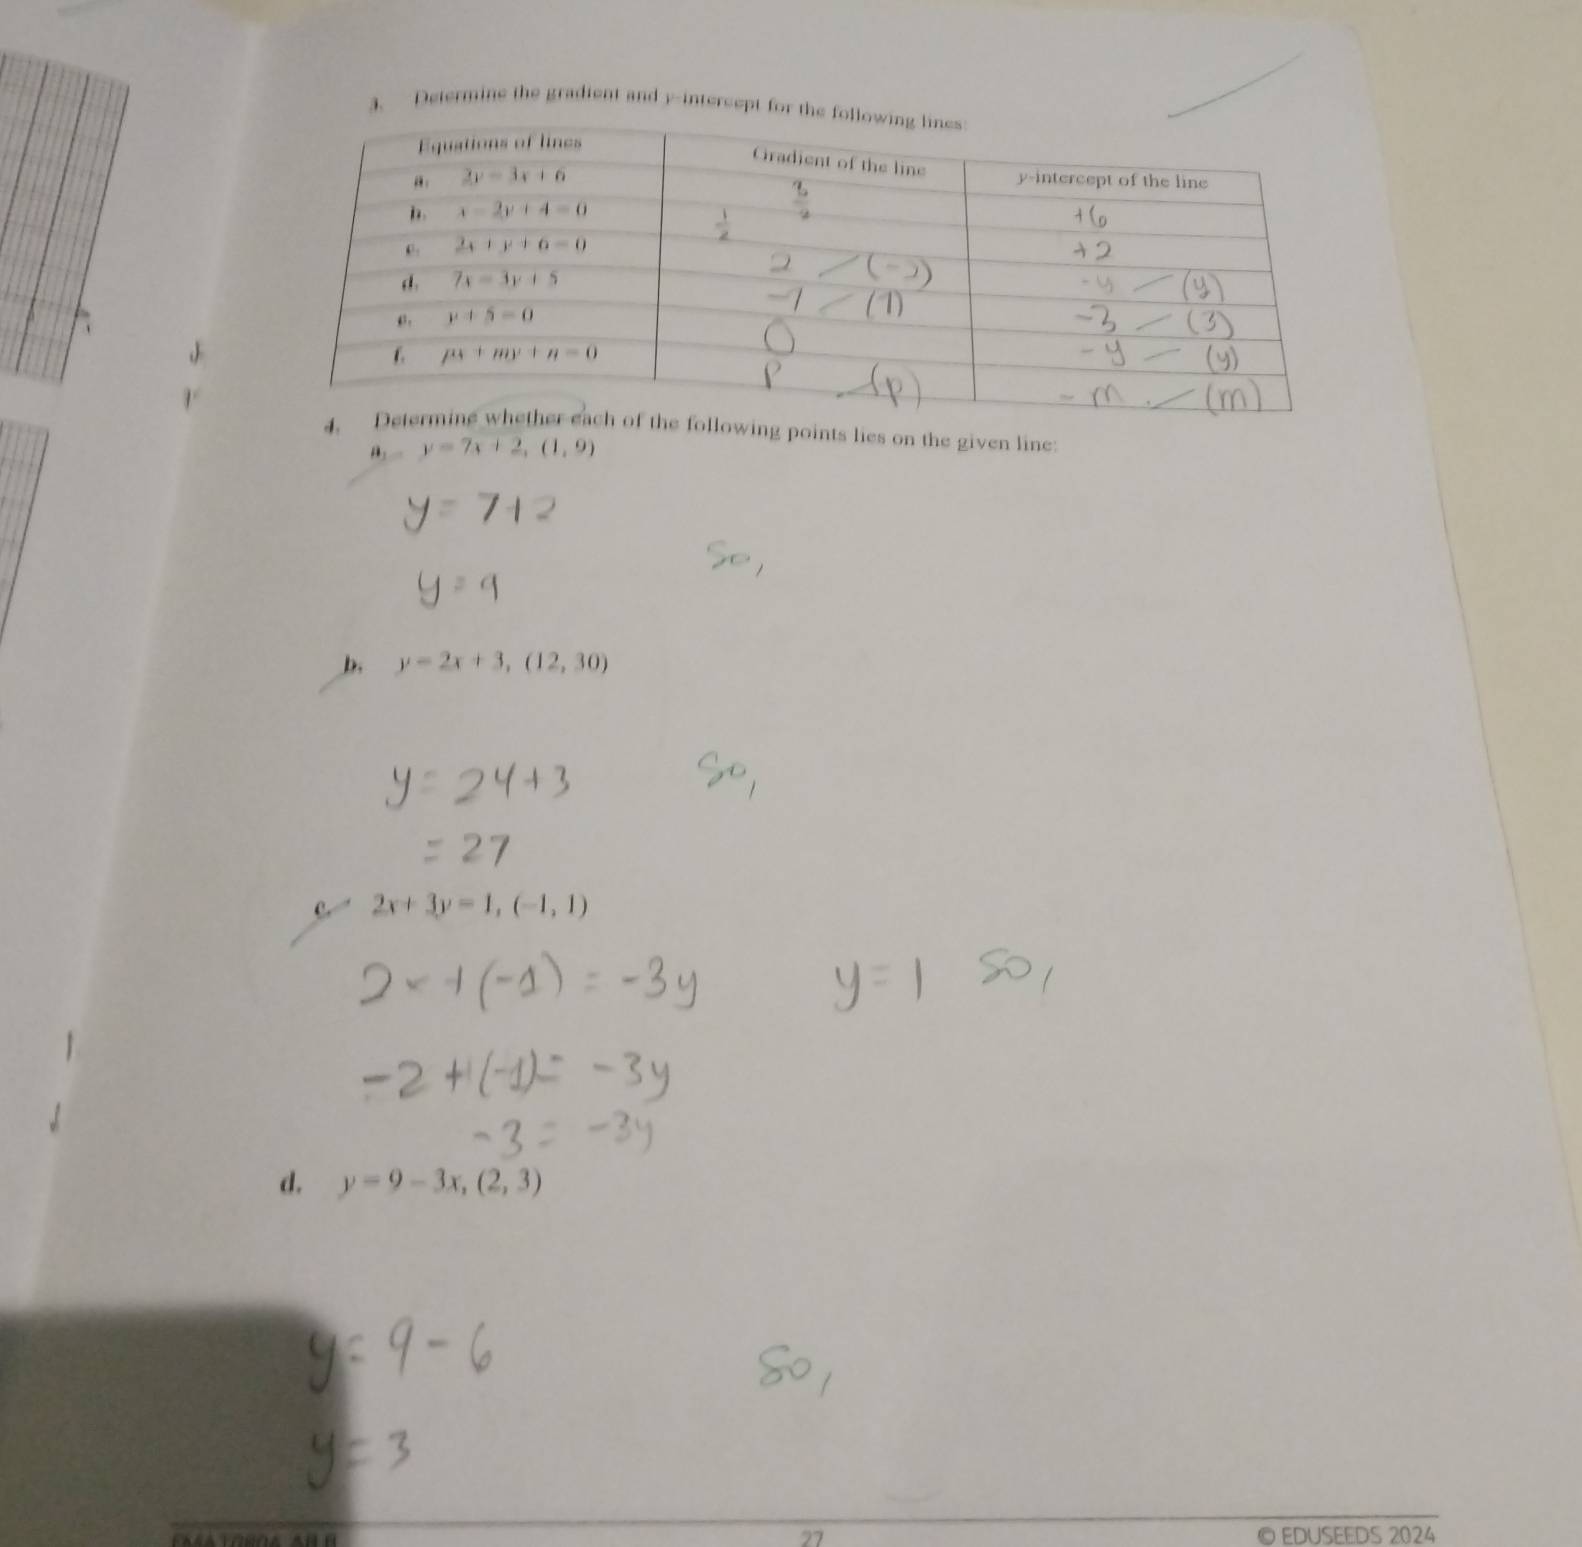 3. Determine the gradient and y-intercept for the following lines:
Equations of lines Gradient of the line y-intercept of the line
a. 2y = 3x + 6 3/2 +6
b. x - 2y + 4 = 0 1/2 +2
c. 2x + y + 6 = 0 2 / (-2) -y / (y)
d. 7x = 3y + 5 -7 / (7) -3 / (3)
e. y + 5 = 0 0 -y / (y)
f. px + my + n = 0 p / (p) -m / (m)
4. Determine whether each of the following points lies on the given line:
a. y = 7x + 2, (1, 9)
y = 7+2
so,
y = 9
b. y = 2x + 3, (12, 30)
y = 24+3 so,
= 27
c. 2x + 3y = 1, (-1, 1)
2x + (-1) = -3y y = 1 so,
-2 + (-1) = -3y
-3 = -3y
d. y = 9 - 3x, (2, 3)
y = 9 - 6 so,
y = 3
27 © EDUSEEDS 2024